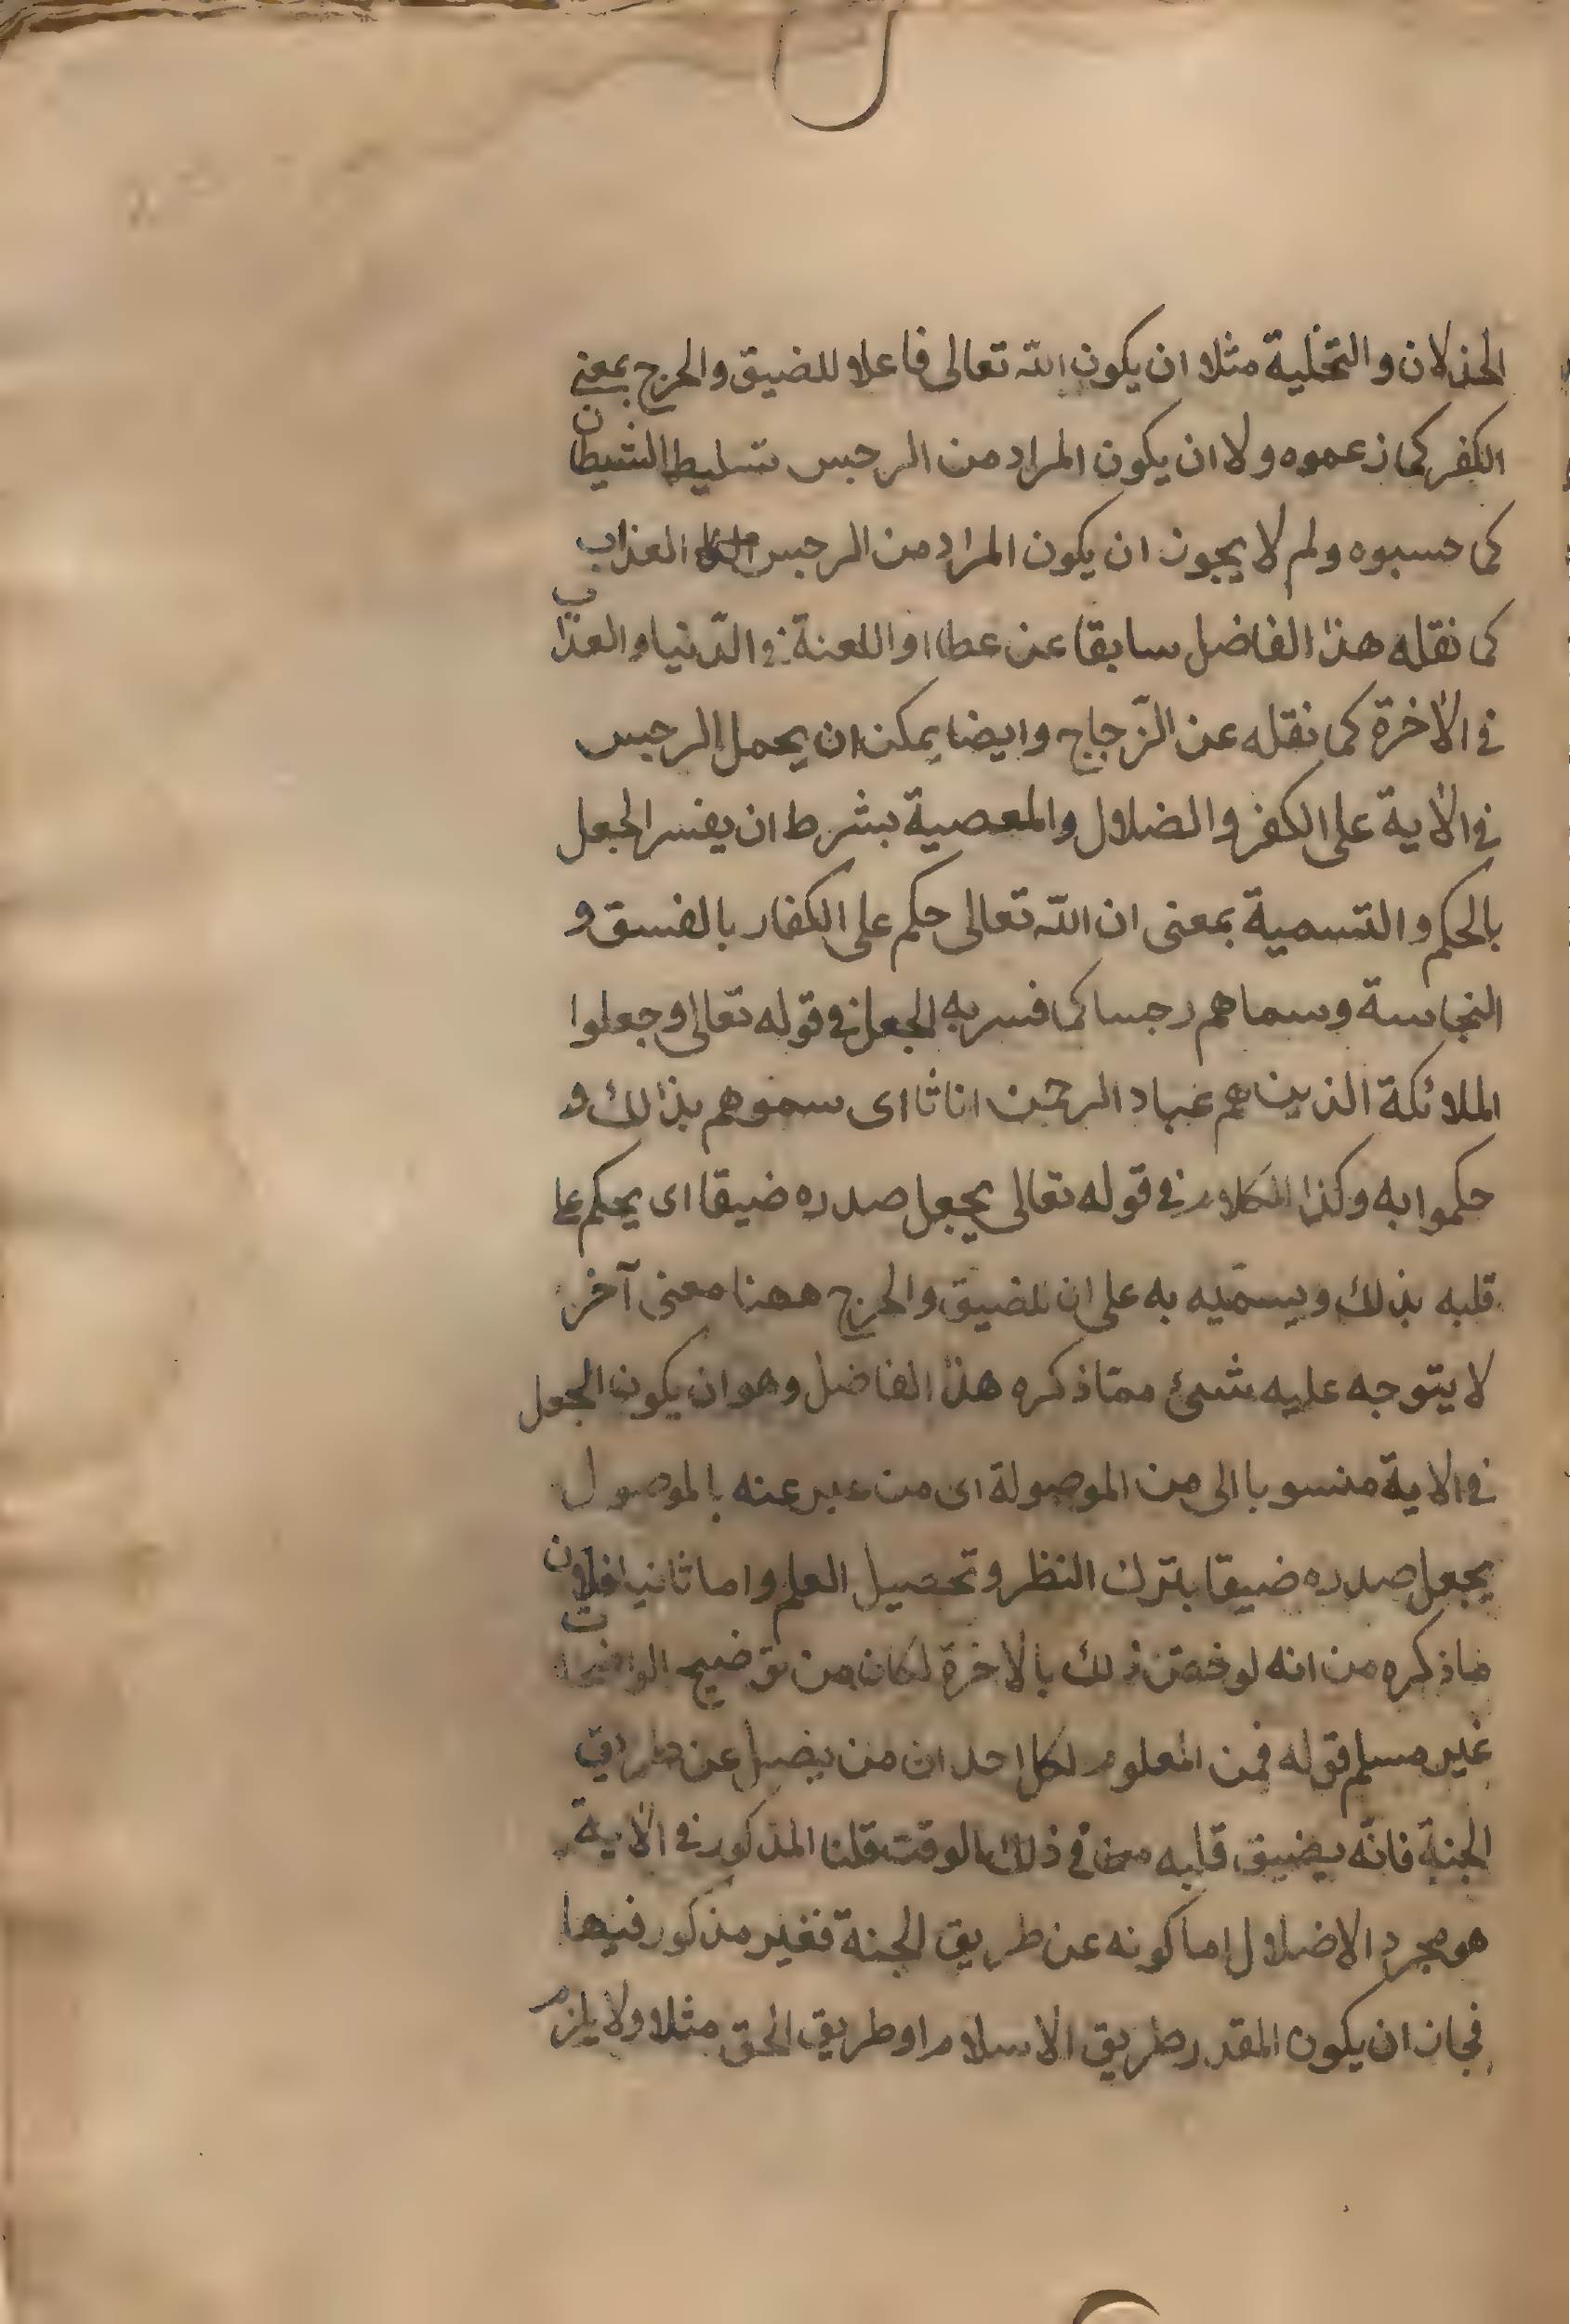 الخذلان والتخلية مثلا ان يكون الله تعالى فاعلا للضيق والحرج بمعنى
الكفر كما زعموه ولا ان يكون المراد من الرجس تسليط الشيطان
كما حسبوه ولم لا يجوز ان يكون المراد من الرجس العذاب
كما نقله هذا الفاضل سابقا عن عطا او اللعنة في الدّنيا والعذاب
في الآخرة كما نقله عن الزّجاج وايضا يمكن ان يحمل الرجس
في الآية على الكفر والضلال والمعصية بشرط ان يفسر الجعل
بالحكم والتسمية بمعنى ان الله تعالى حكم على الكفار بالفسق و
النجاسة وسماهم رجسا كما فسر به الجعل في قوله تعالى وجعلوا
الملائكة الذين هم عباد الرحمن اناثا اى سموهم بذالك و
حكموا به وكذا الكلام في قوله تعالى يجعل صدره ضيقا اى يحكم على
قلبه بذلك ويسمّيه به على ان للضيق والحرج ههنا معنى آخر
لا يتوجه عليه شئ ممّا ذكره هذا الفاضل وهو ان يكون الجعل
في الاية منسوبا الى من الموصولة اى من عبر عنه بالموصول
يجعل صدره ضيقا بترك النظر وتحصيل العلم واما ثانيا فلان
ما ذكره من انه لو خصّ ذلك بالاخرة لكان من توضيح الواضحات
غير مسلم قوله فمن المعلوم لكل احد ان من يضل عن طريق
الجنة فانّه يضيق قلبه في ذلك الوقت قلنا المذكور في الآية
هو مجرد الاضلال اما كونه عن طريق الجنة فغير مذكور فيها
فجاز ان يكون المقدر طريق الاسلام او طريق الحق مثلا ولا يلزم